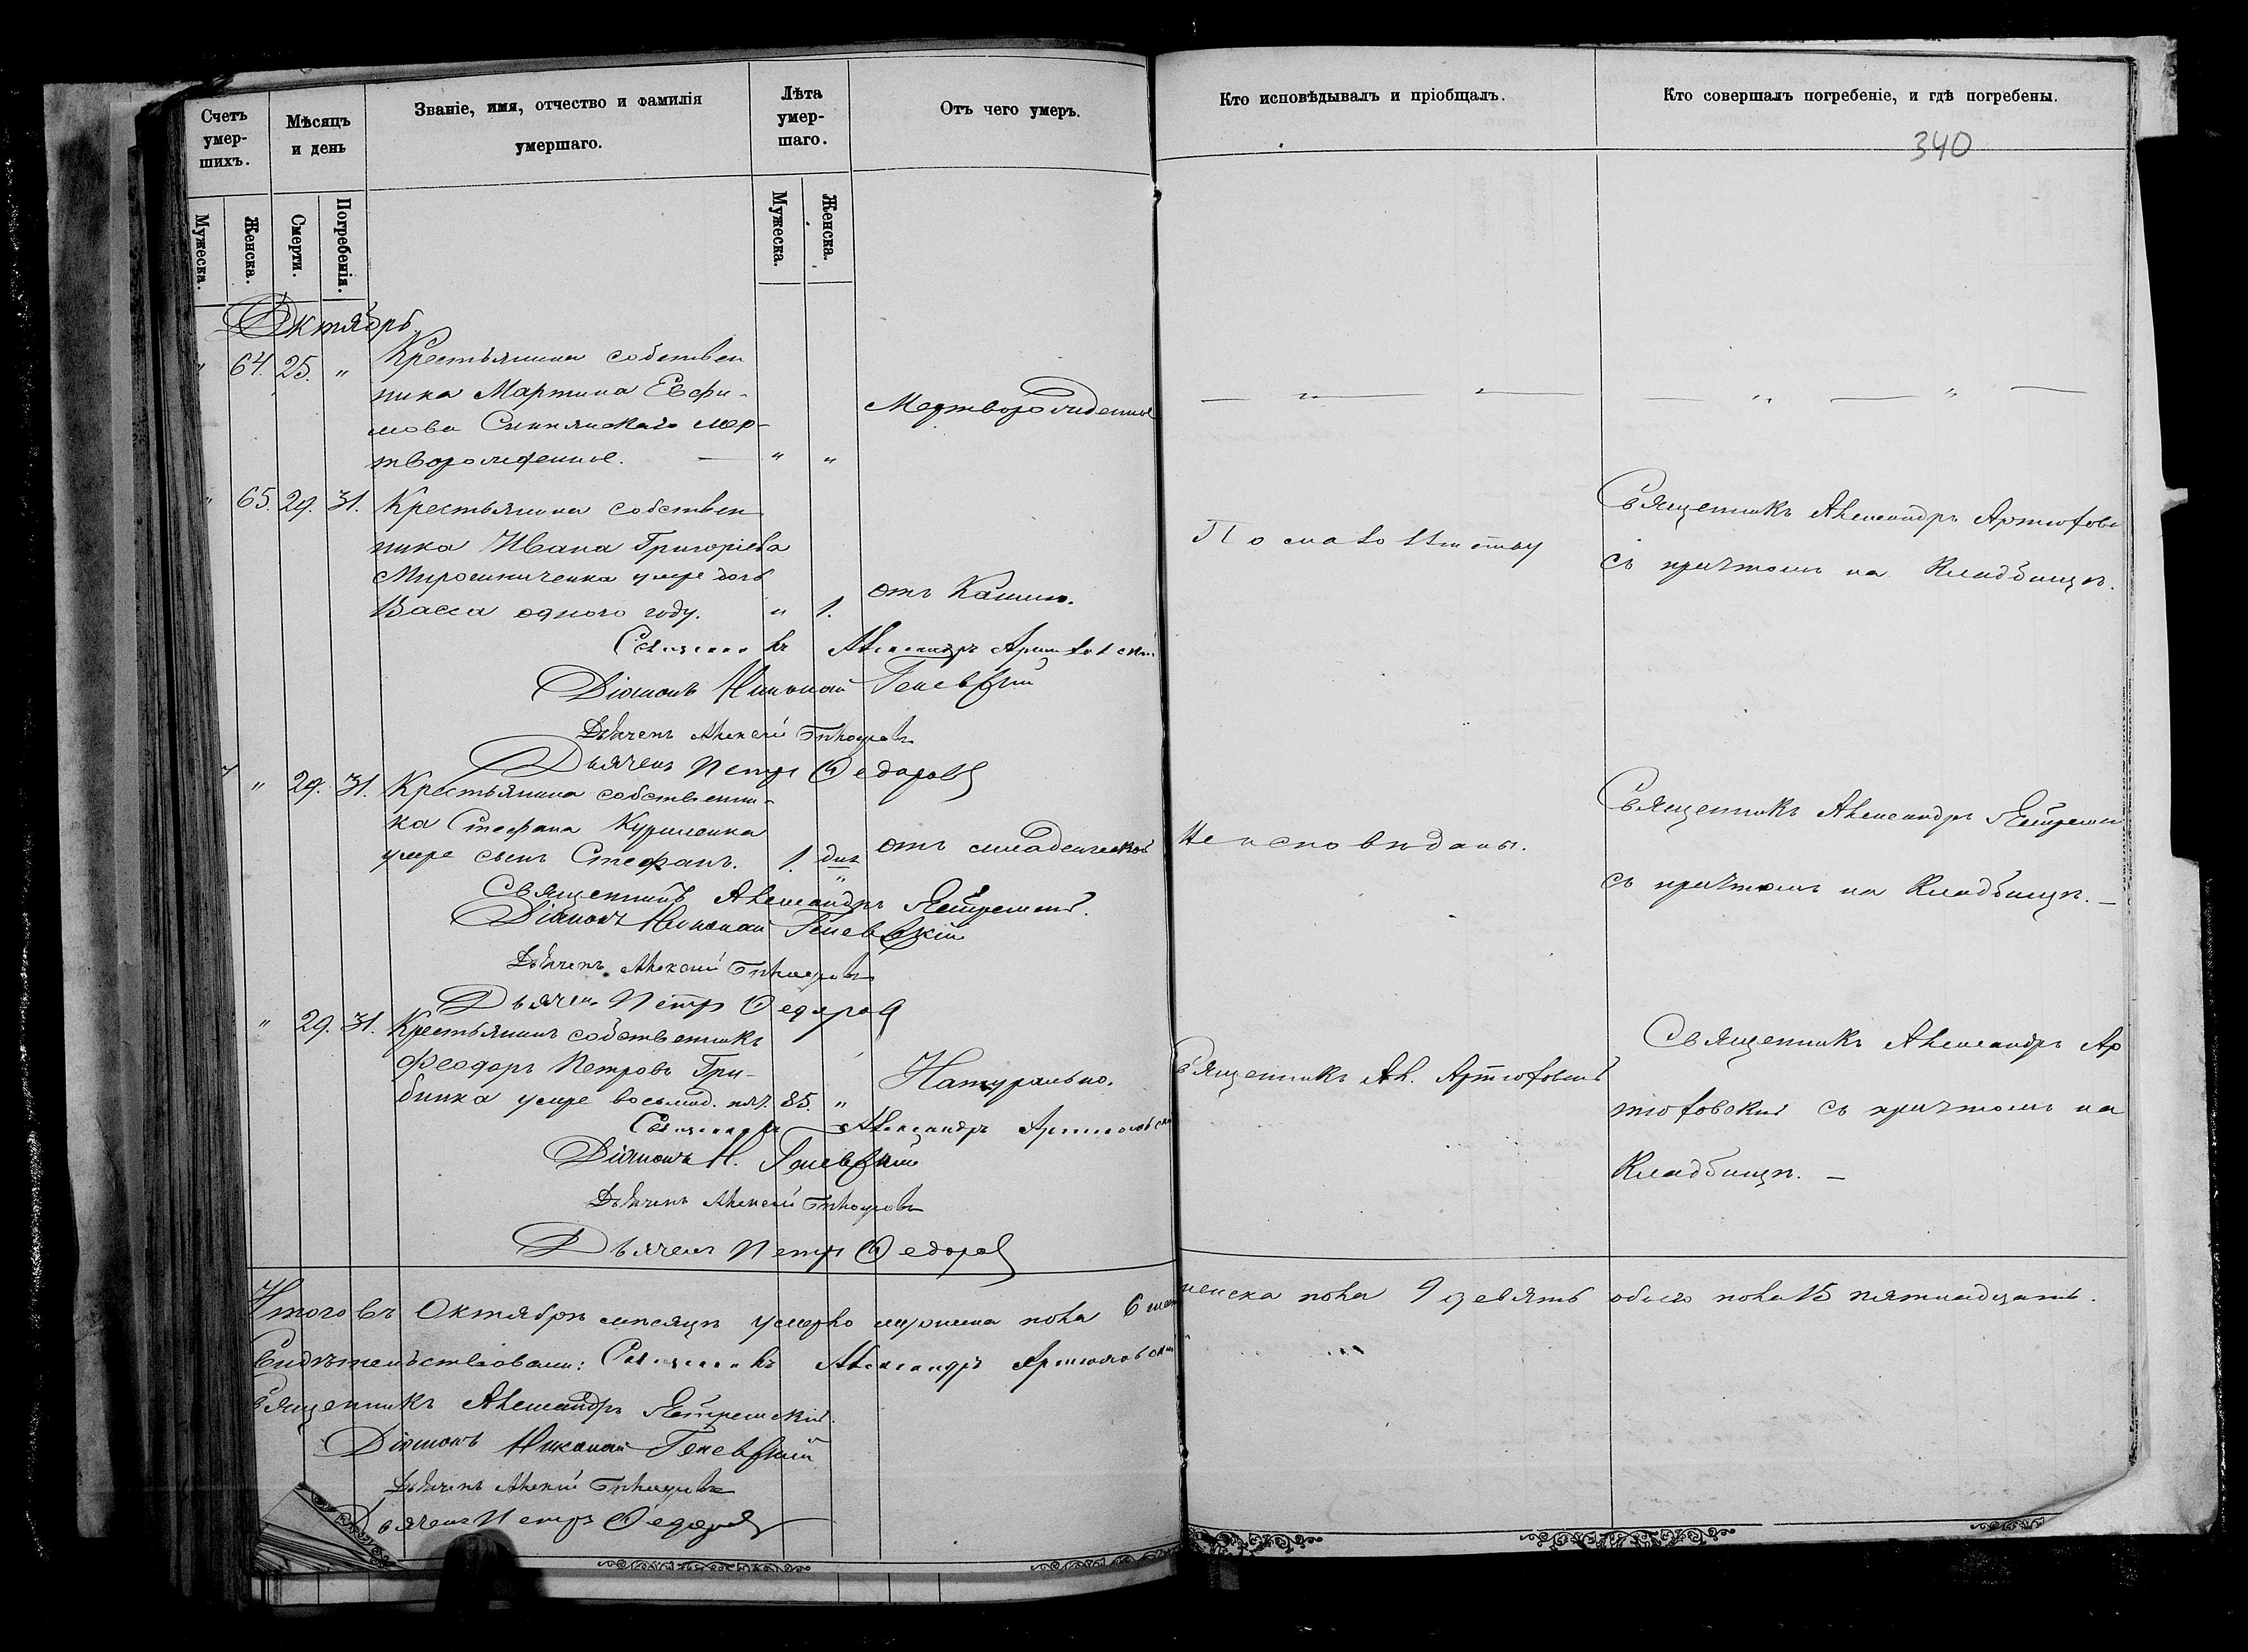 Счетъ умер-шихъ.
Мѣсяцъ и день
Званіе, имя, отчество и фамилія умершаго.
Лѣта умер-шаго.
Отъ чего умеръ.
Кто исповѣдывалъ и пріобщалъ.
Кто совершалъ погребеніе, и гдѣ погребены.
340
Мужеска.
Женска.
Смерти.
Погребенія.
Мужеска.
Женска.
Октябрь
" 64. 25. " Крестьянина собствен
ника Мартина Евфи-
мова мер-
творожденные. — " "
Мертворожденные
" 65. 29. 31. Крестьянина собствен
ника Ивана Григоріева
Мирошниченка умре дочь
Васса одного году. " 1.
отъ Кашлю.
По малолѣтству
Священникъ Александръ Артюховс
съ причтомъ на Кладбищѣ.
Священникъ Александръ Артюховскій
Діаконъ Николай Геневскій
Дьячекъ Алексій
Дьячекъ Петръ Федоровъ
" 29. 31. Крестьянина собственни-
ка Стефана Куриленка
умре сынъ Стефанъ. 1. дня "
отъ младенческой
Не исповѣданы.
Священникъ Александръ
съ причтомъ на Кладбищѣ. —
Священникъ Александръ
Діаконъ Николай Геневскій
Дьячекъ Алексій
Дьячекъ Петръ Федоровъ
" 29. 31. Крестьянинъ собственникъ
Феодоръ Петровъ Гри-
бинка умре восьмид. пят. 85. "
Натурально.
Священникъ Ал. Артюховскій
Священникъ Александръ Ар
тюховскій съ причтомъ на
Кладбищѣ. —
Священникъ Александръ Артюховскій
Діаконъ Н. Геневскій
Дьячекъ Алексій
Дьячекъ Петръ Федоровъ
Итого въ Октябрѣ мѣсяцѣ умерло мужеска пола 6 шест женска пола 9 девять обоего пола 15 пятнадцать.
Свидѣтельствовали: Священникъ Александръ Артюховскій
Священникъ Александръ
Діаконъ Николай Геневскій
Дьячекъ Алексій
Дьячекъ Петръ Федоровъ